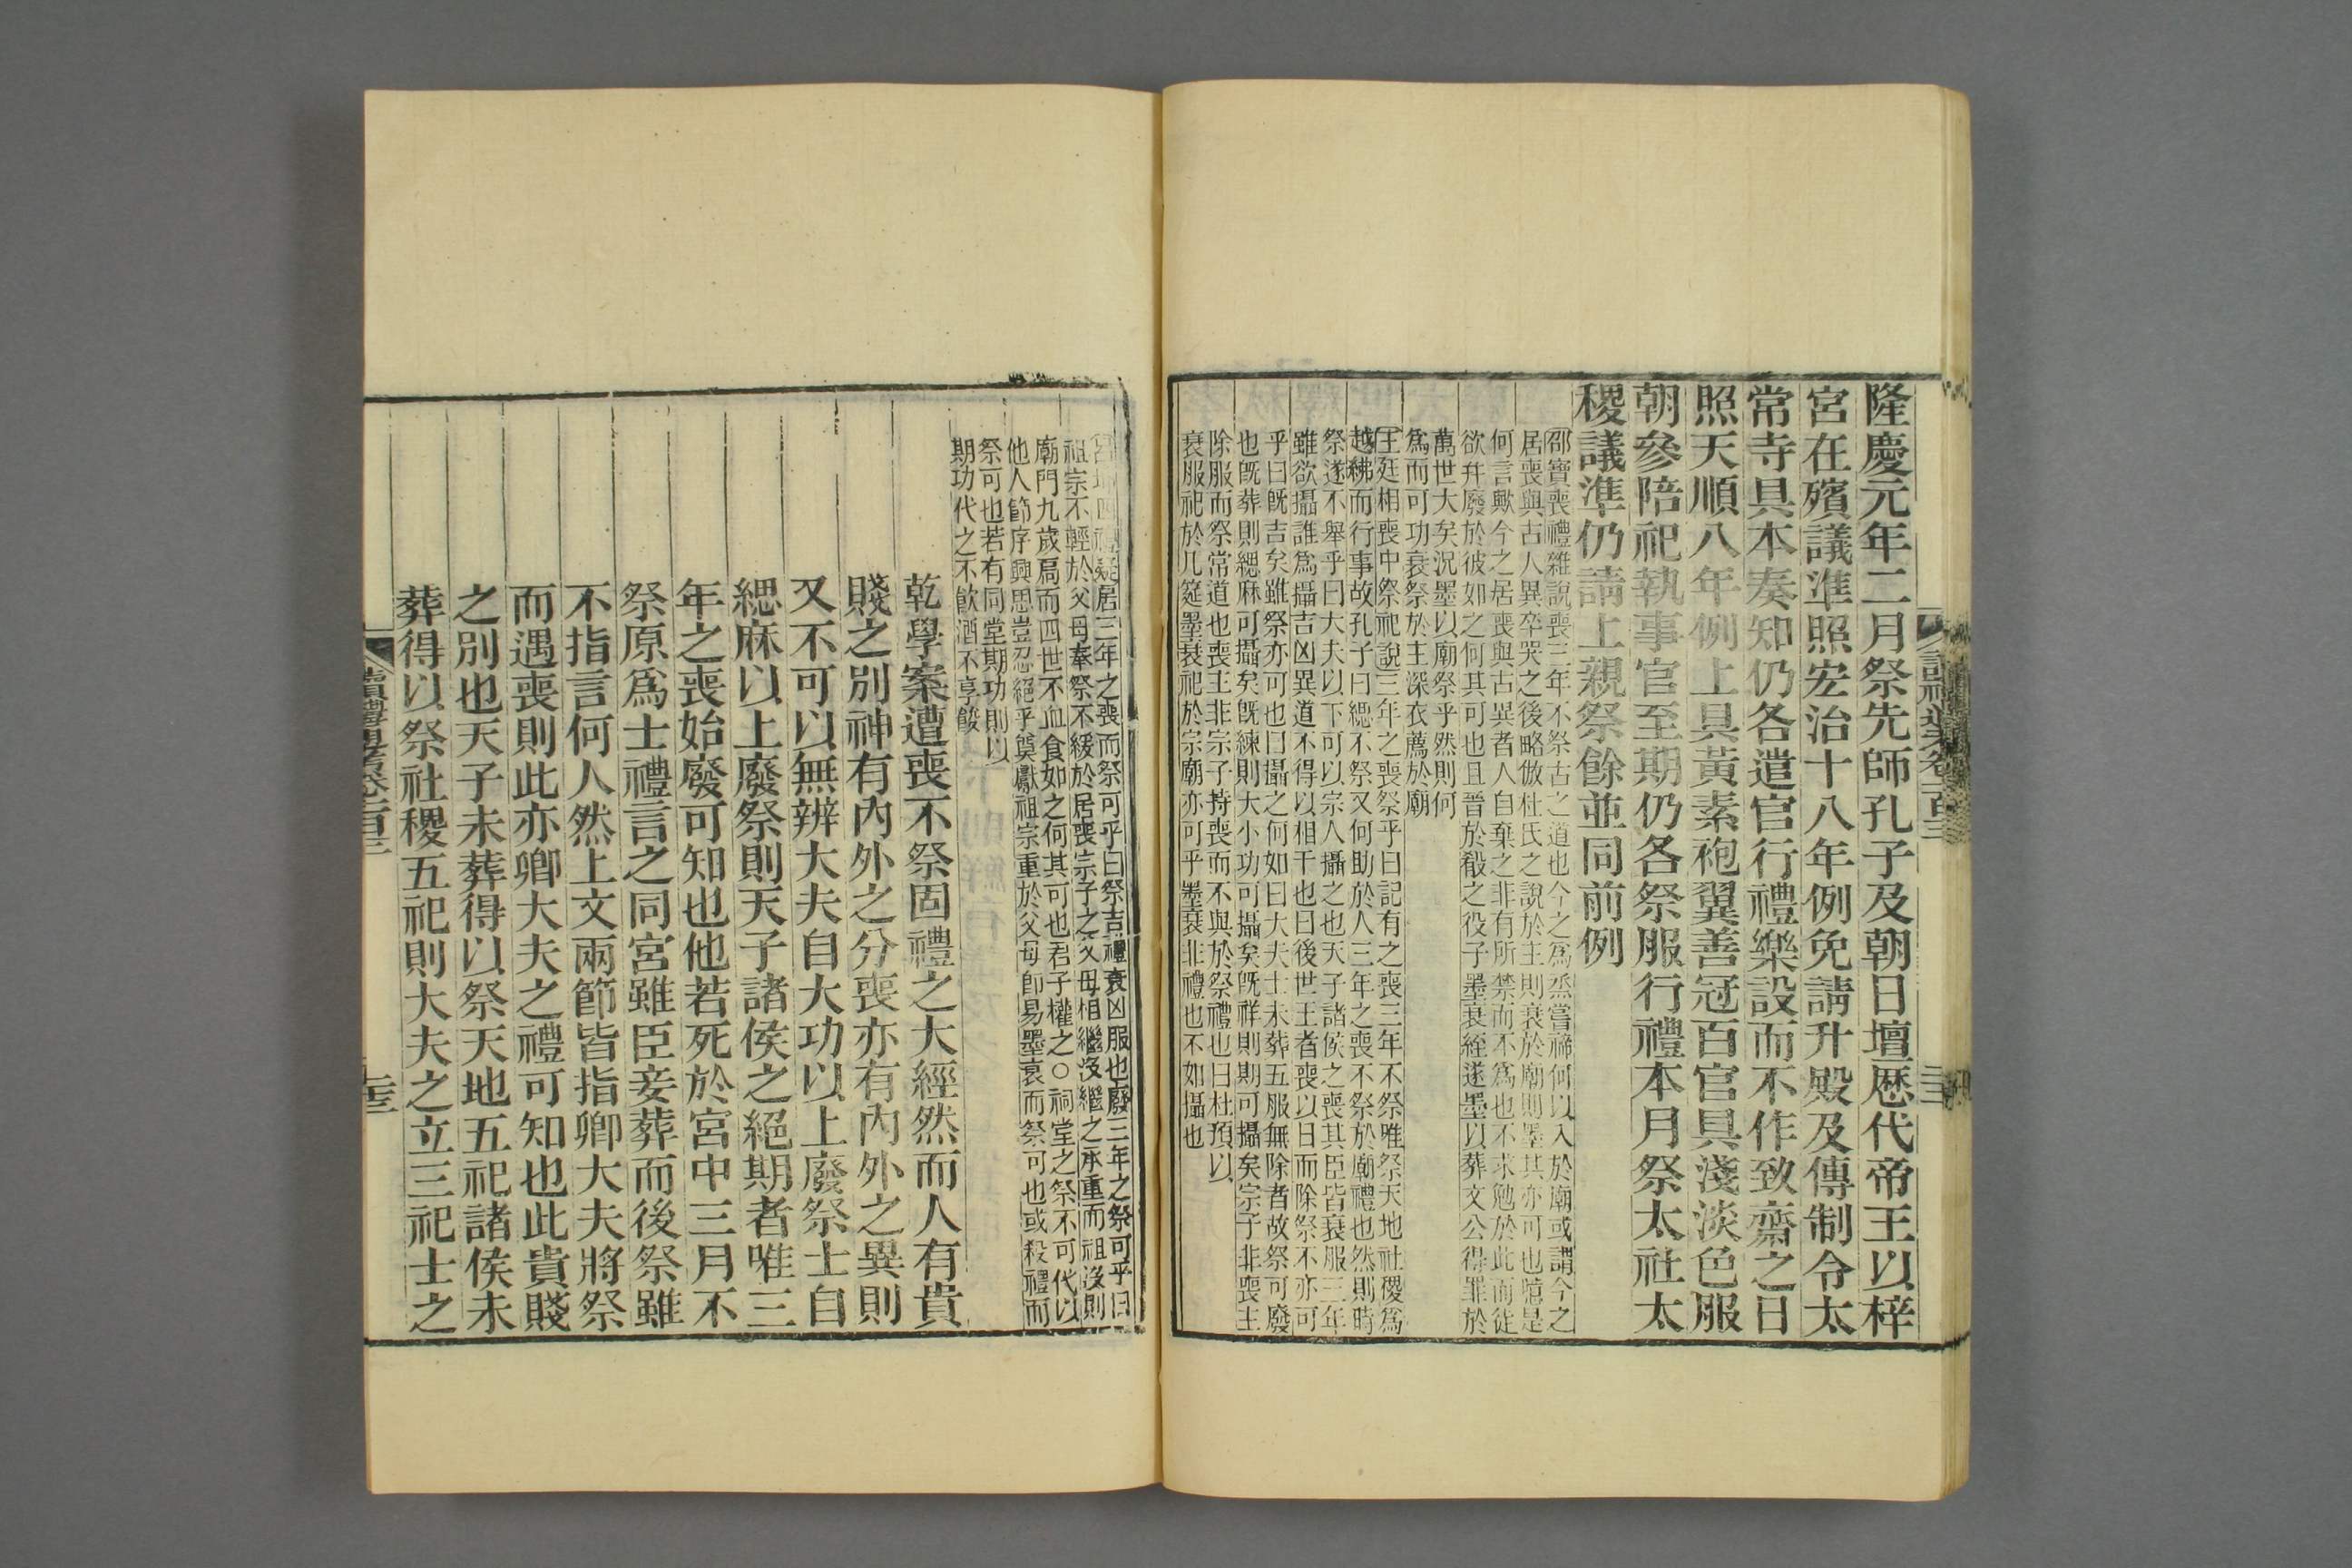 隆慶元年二月祭先師孔子及朝日壇歷代帝王以梓
宮在殯議準照宏治十八年例免請升殿及傳制令太
常寺具本奏知仍各遣官行禮樂設而不作致齋之日
照天順八年例上具黃素袍翼善冠百官具淺淡色服
朝參陪祀執事官至期仍各祭服行禮本月祭太社太
稷議準仍請上親祭餘並同前例
邵寶喪禮雜說喪三年不祭古之道也今之爲烝嘗禘何以入於廟或謂今之
居喪與古人異卒哭之後略倣杜氏之說於主則衰於廟則墨其亦可也噫是
何言歟今之居喪與古異者人自棄之非有所禁而不爲也不求勉於此而徒
欲幷廢於彼如之何其可也且晉於殽之役子墨衰絰遂墨以葬文公得罪於
萬世大矣況墨以廟祭乎然則何
爲而可功衰祭於主深衣薦於廟
王廷相喪中祭祀說三年之喪祭乎曰記有之喪三年不祭唯祭天地社稷爲
越紼而行事故孔子曰緦不祭又何助於人三年之喪不祭於廟禮也然則時
祭遂不舉乎曰大夫以下可以宗人攝之也天子諸侯之喪其臣皆衰服三年
雖欲攝誰爲攝吉凶異道不得以相干也曰後世王者喪以日而除祭不亦可
乎曰旣吉矣雖祭亦可也曰攝之何如曰大夫士未葬五服無除者故祭可廢
也旣葬則緦麻可攝矣旣練則大小功可攝矣旣祥則期可攝矣宗子非喪主
除服而祭常道也喪主非宗子持喪而不與於祭禮也曰杜預以
衰服祀於几筵墨衰祀於宗廟亦可乎墨衰非禮也不如攝也
呂坤四禮疑居三年之喪而祭可乎曰祭吉禮衰凶服也廢三年之祭可乎曰
祖宗不輕於父母奉祭不緩於居喪宗子之父母相繼沒繼之承重而祖沒則
廟門九歲扃而四世不血食如之何其可也君子權之○祠堂之祭不可代以
他人節序興思豈忍絕乎奠獻祖宗重於父母卽易墨衰而祭可也或殺禮而
祭可也若有同堂期功則以
期功代之不飮酒不享餕
乾學案遭喪不祭固禮之大經然而人有貴
賤之別神有內外之分喪亦有內外之異則
又不可以無辨大夫自大功以上廢祭士自
緦麻以上廢祭則天子諸侯之絕期者唯三
年之喪始廢可知也他若死於宮中三月不
祭原爲士禮言之同宮雖臣妾葬而後祭雖
不指言何人然上文兩節皆指卿大夫將祭
而遇喪則此亦卿大夫之禮可知也此貴賤
之別也天子未葬得以祭天地五祀諸侯未
葬得以祭社稷五祀則大夫之立三祀士之
讀禮通考卷一百十三